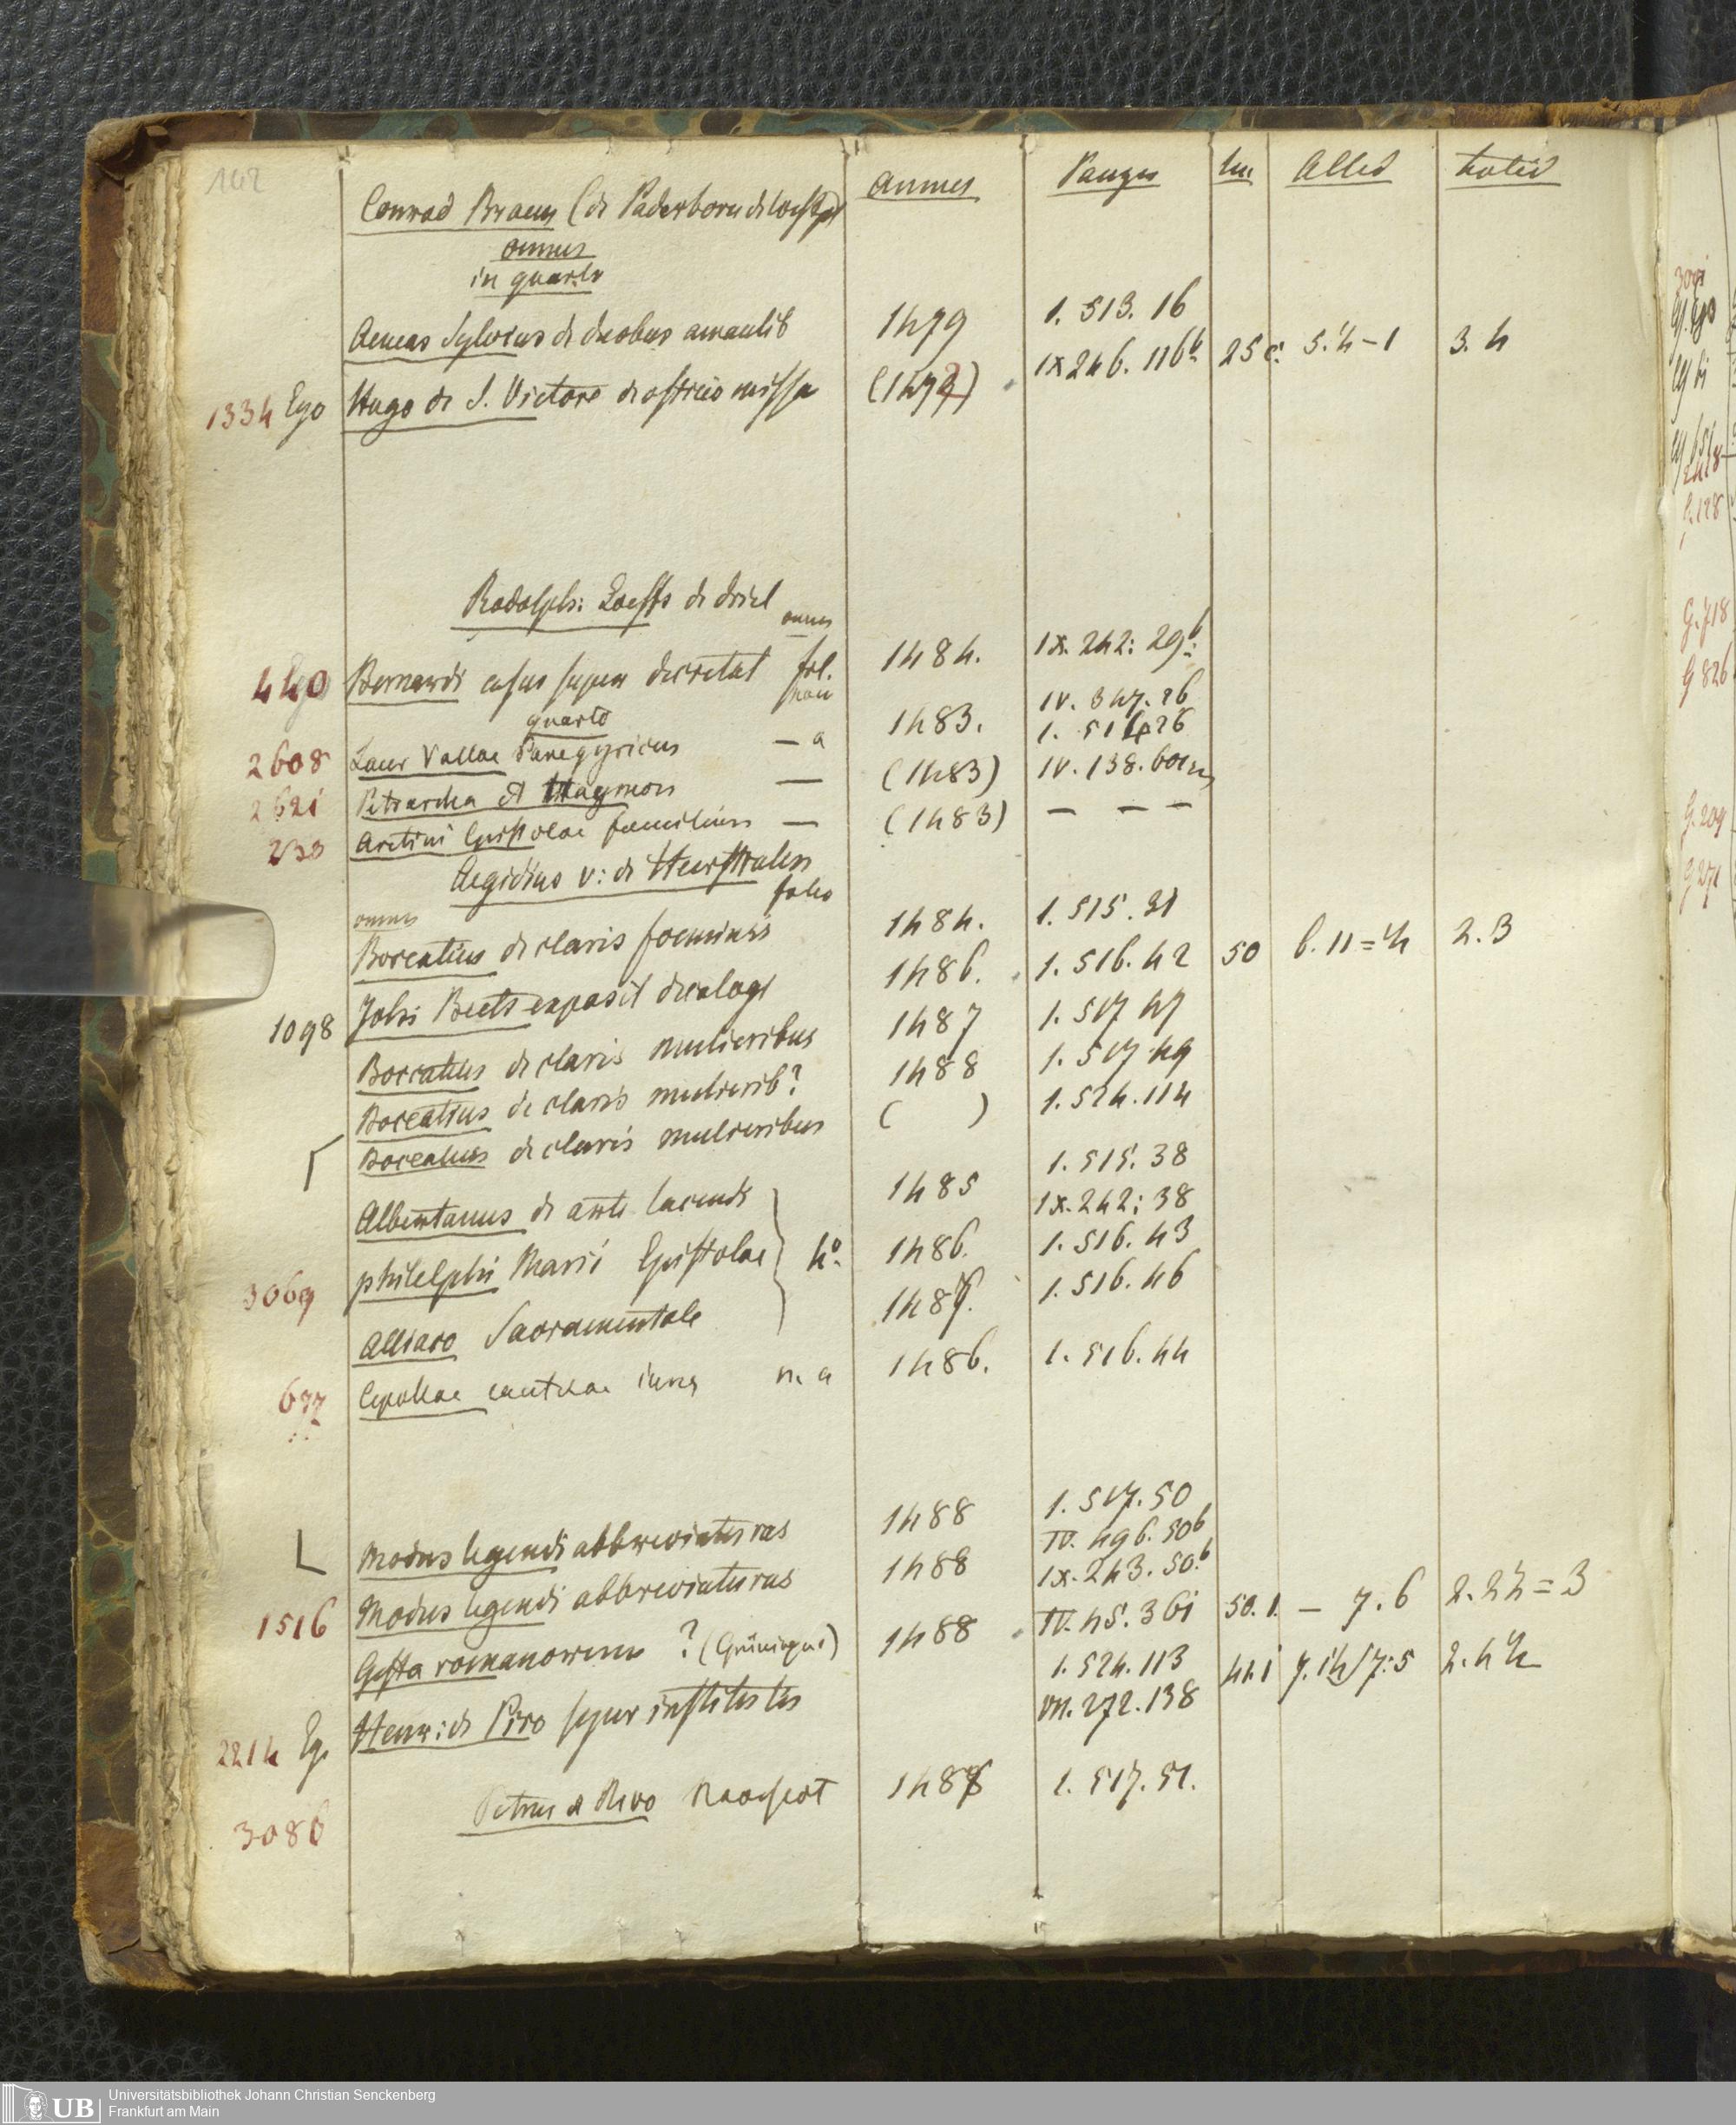 142
Conrad Braem (de Paderborn de
annus Panzer lin Alled
omnes
in quarto
Aeneas Sylvius de duobus amantib 1479 1. 513. 16
1334 Ego Hugo de S. Victore missa (1479) IX 246. 116b 25 5. 4 - 1 3. 4
Rodolph: Loeffs de driel
omnes
440 Bernardi casus super decretal fol. 1484. IX. 242: 29b
quarto
2608 Laur Vallae Panegyricus — a 1483. IV. 347. 26
1. 514 26
2621 Petrarcha et Haymon — (1483) IV. 138. 601
230 Aretini Epistolae familiares — (1483) — — —
Aegidius v: de Heerstraten
omnes folio
Boccatius de claris foeminis 1484. 1. 515. 31
1098 Johi Beets exposit decalogi 1486. 1. 516. 42 50 6. 11 = 2. 3
Boccatius de claris mulieribus 1487 1. 517 47
Boccatius de claris mulierib? 1488 1. 517. 49
Boccatius de claris mulieribus ( ) 1. 524. 114
Albertanus de arte lacendi 1485 1. 515. 38
IX. 242: 38
3069 philelphi Marii Epistolae 4o. 1486. 1. 516. 43
Alliaco Sacramentale 1487. 1. 516. 46
677 Cepollae cautelae iuris n. a 1486. 1. 516. 44
Modus legendi abbreviaturas 1488 1. 517. 50
IV. 496. 50b
1516 Modus legendi abbreviaturas 1488 IX. 243. 50.b
Gesta romanorum ? (Grüninger) 1488 IV. 45. 361 50. 1. — 7. 6 = 3
2214 Eg. Henr: de Piro super institutis 1. 524. 113 41.1
VII. 272. 138
3086 Petrus de Rivo 1488 1. 517. 51.
Universitätsbibliothek Johann Christian Senckenberg
Frankfurt am Main
UB